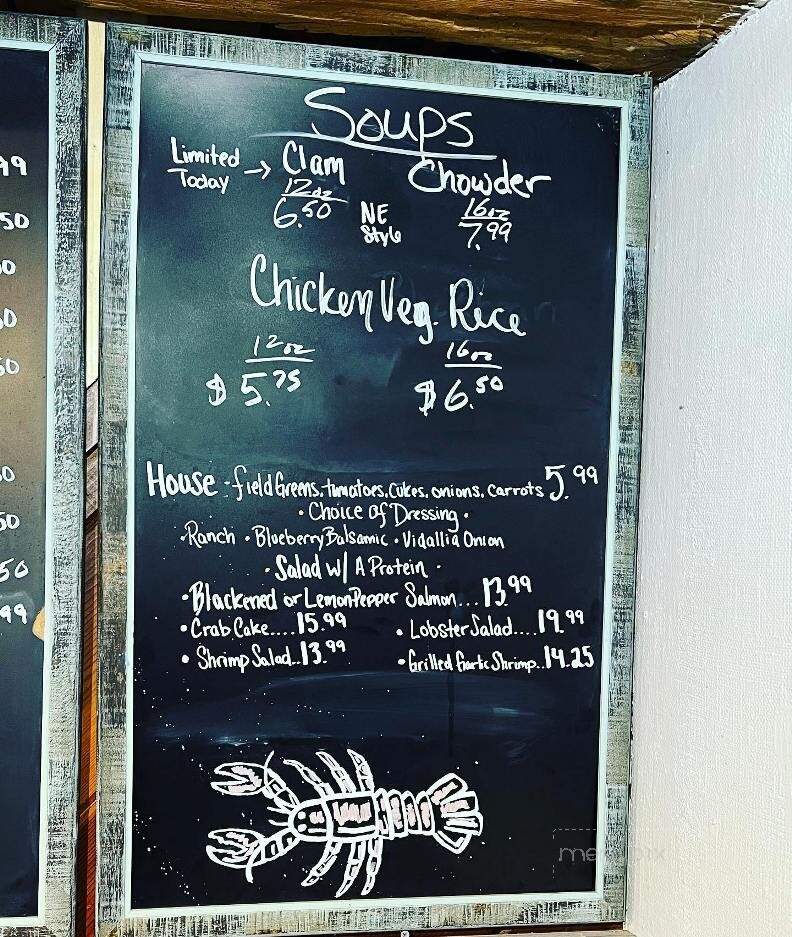 Soups
Limited Today → Clam Chowder
12oz 16oz
6.50 NE Style 7.99
Chicken Veg. Rice
12oz 16oz
$5.75 $6.50
House - field Greens, tumatoes, Cukes, onions, carrots 5.99
• Choice of Dressing •
• Ranch • Blueberry Balsamic • Vidallia Onion
• Salad w/ A Protein •
• Blackened or Lemon Pepper Salmon... 13.99
• Crab Cake.... 15.99 • Lobster Salad.... 19.99
• Shrimp Salad.. 13.99 • Grilled Garlic Shrimp.. 14.25
99
50
0
0
50
0
50
50
99